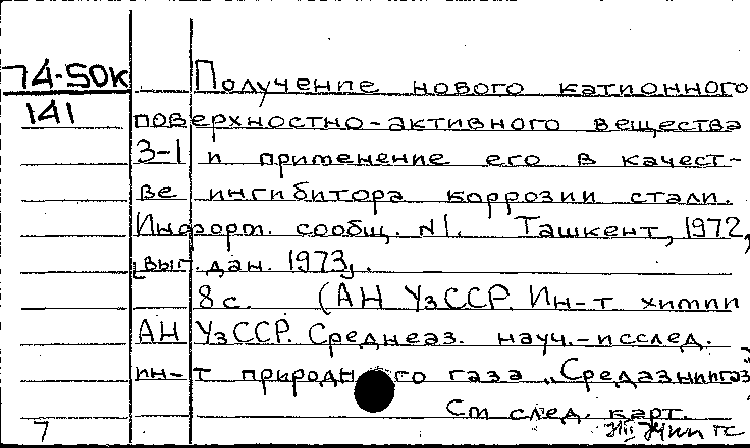 74-50к Получение нового катионного
141 поверхностно-активного вещества
З-1 и применение его в качест-
ве ингибитора коррозии стали.
Информ. сообщ. №1. Ташкент, 1972,
[вып. дан. 1973].
8 с. (АН УзССР. Ин-т химии
АН УзССР. Среднеаз. науч.-исслед.
ин-т природного газа „Средазнипгаз"
См след. карт.
7